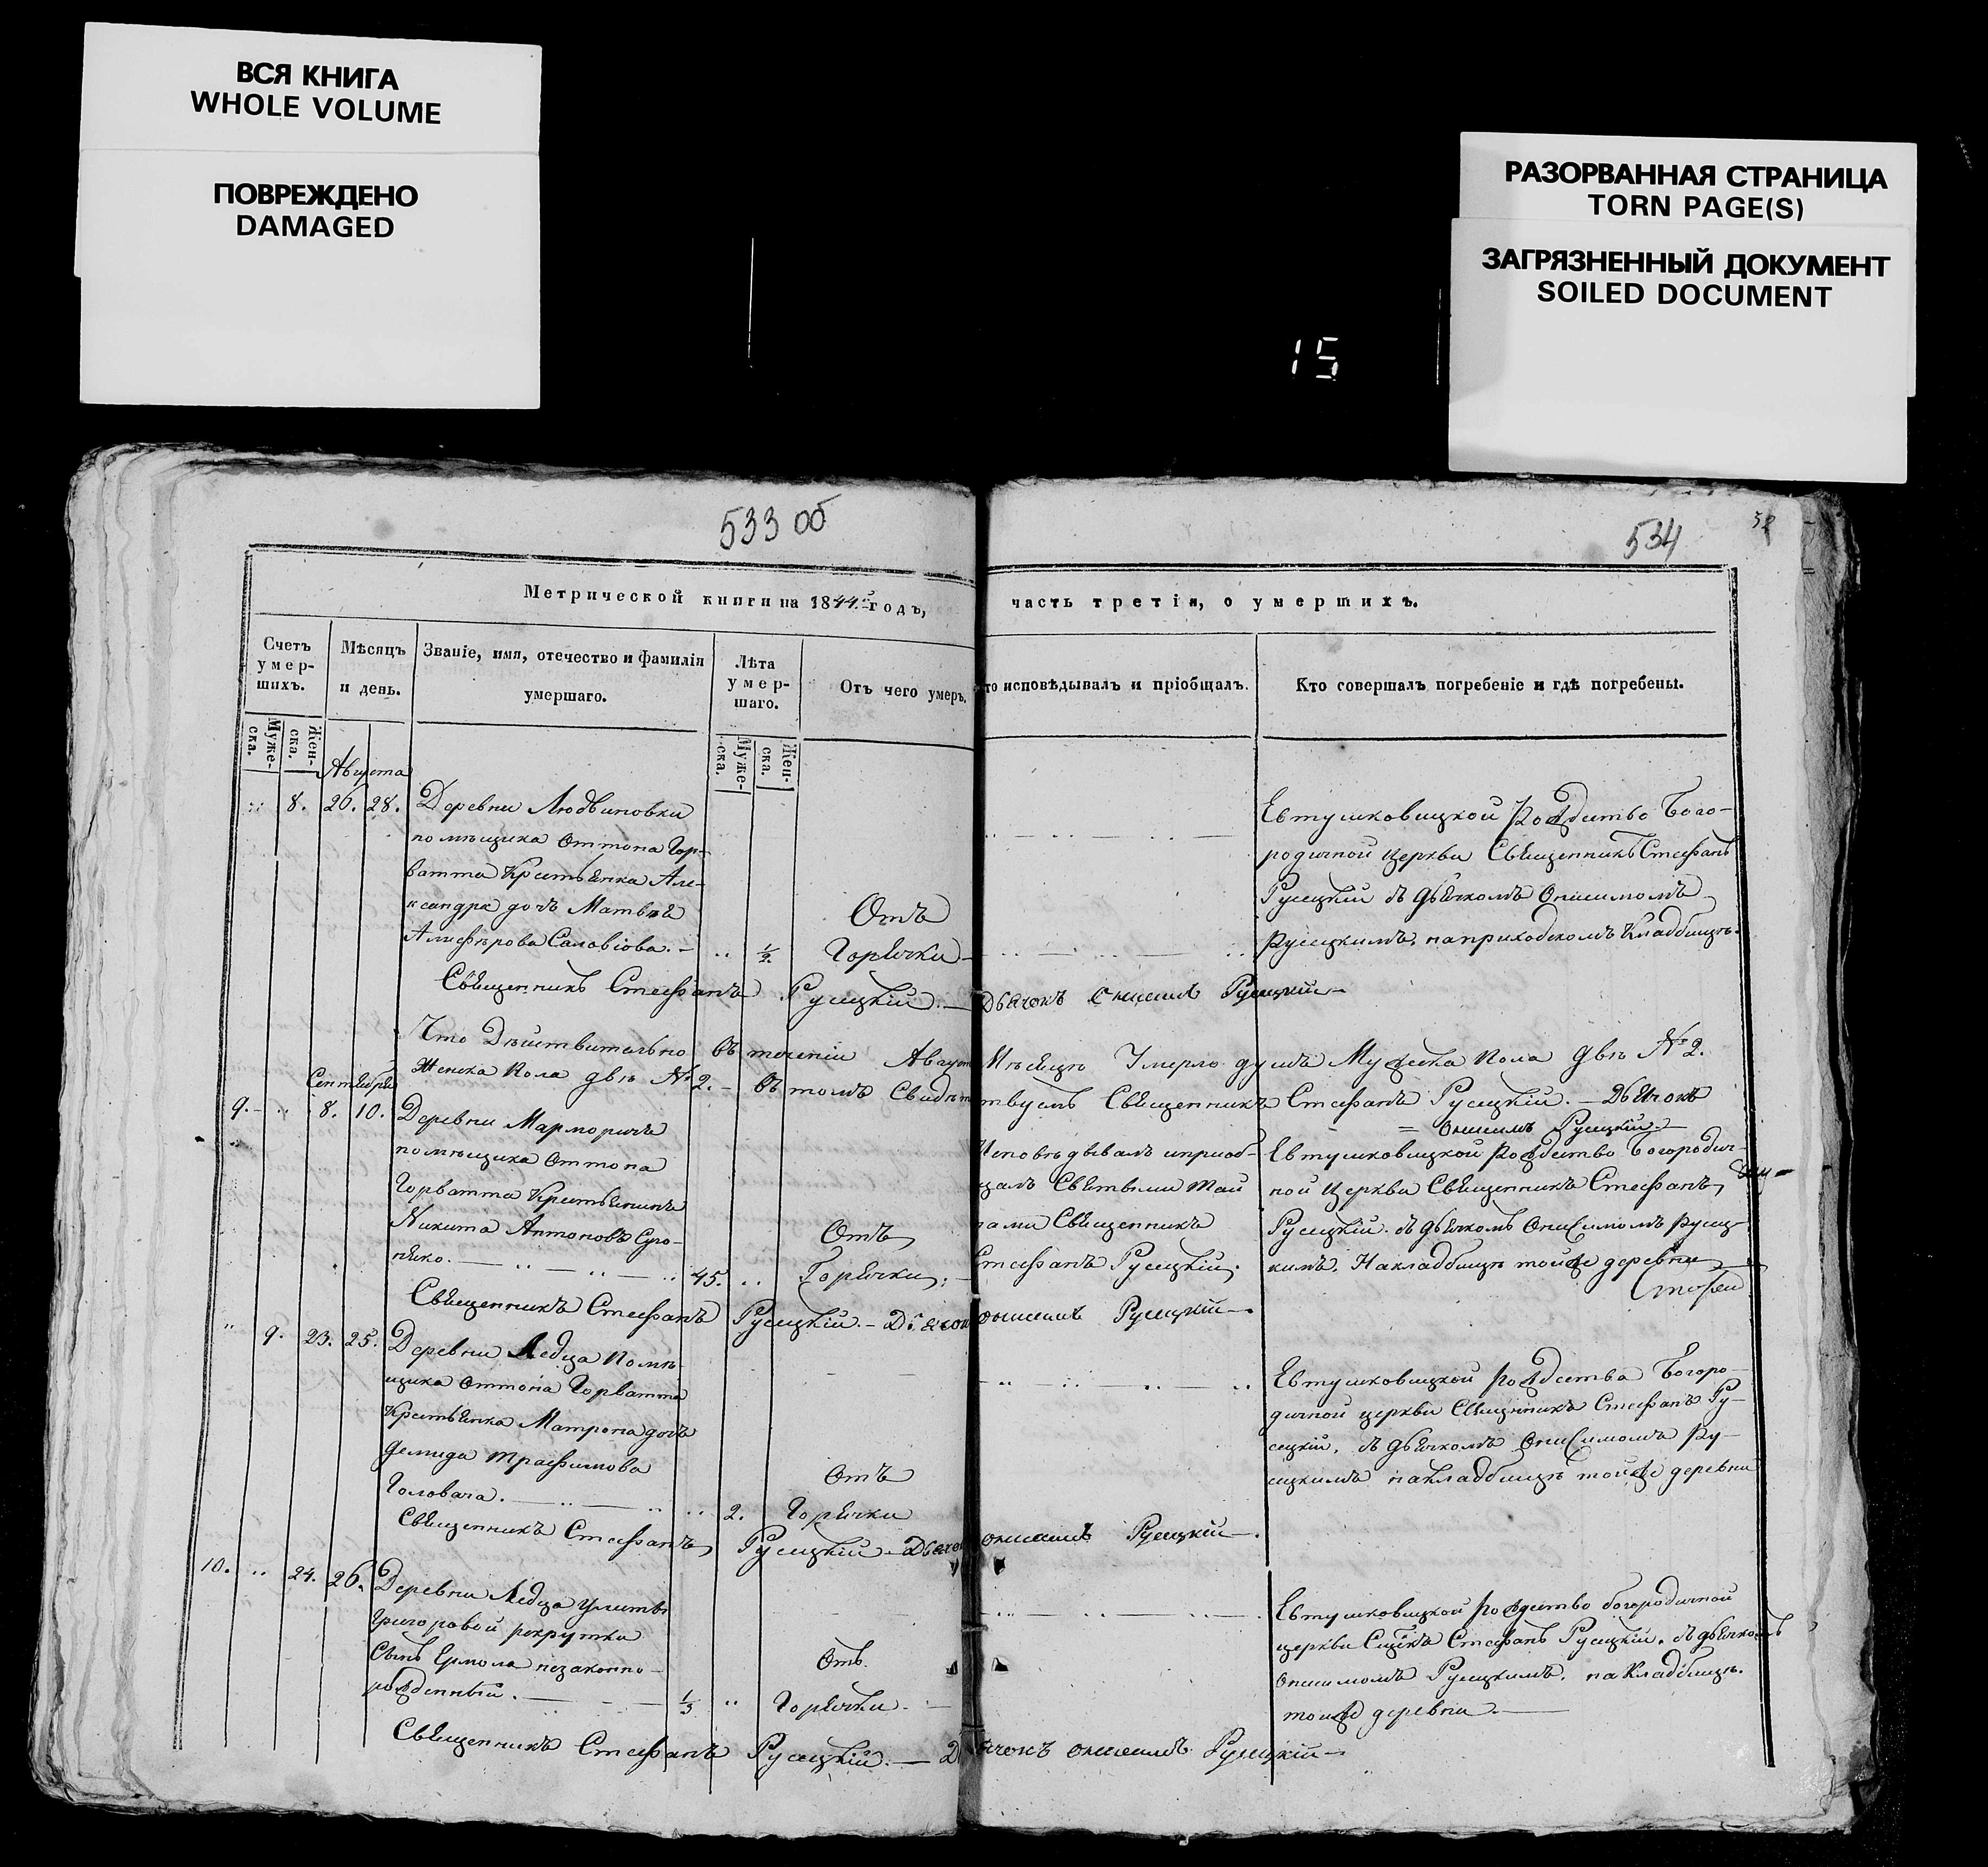 ВСЯ КНИГА
WHOLE VOLUME
ПОВРЕЖДЕНО
DAMAGED
РАЗОРВАННАЯ СТРАНИЦА
TORN PAGE(S)
ЗАГРЯЗНЕННЫЙ ДОКУМЕНТ
SOILED DOCUMENT
15
533 об
534
Метрической книги на 1844 годъ,
часть третія, о умершихъ.
Счетъ умер-шихъ.
Муже-ска.
Жен-ска.
Мѣсяцъ и день.
Званіе, имя, отечество и фамилія умершаго.
Лѣта умер-шаго.
Муже-ска.
Жен-ска.
Отъ чего умеръ.
то исповѣдывалъ и пріобщалъ.
Кто совершалъ погребеніе и гдѣ погребены.
Августа
8. 26. 28. Деревни Людвиновки
помѣщика Оттона Гор-
ватта Крестьянка Але-
ксандра дочь Матвѣя
Саловіова. 1/2
Отъ
Горячки
Евтушковицкой Рождество Бого-
родичной Церкви Священникъ Стефанъ
Русецкій съ дьячкомъ Онисимомъ
Русецкимъ, на приходскомъ Кладбищѣ.
Священникъ Стефанъ Русецкій. — Дьячокъ Онисимъ Русецкій
Что Дѣйствительно въ теченіи Август Мѣсяцѣ Умерло душъ Мужеска Пола двѣ №2.
Женска Пола двѣ №2. — въ томъ Свидѣтельствуемъ Священникъ Стефанъ Русецкій. — Дьячокъ
Онисимъ Русецкій
Сентября
9. 8. 10. Деревни
помѣщика Оттона
Горватта Крестьянинъ
Никита Антоновъ Суго-
няко. 45.
Отъ
Горячки
Исповѣдывалъ и приоб-
щалъ Святыми Тай
нами Священникъ
Стефанъ Русецкій.
Евтушковицкой Рождество Богородич-
ной Церкви Священникъ Стефанъ
Русецкій съ дьячкомъ Онисимомъ Русец-
кимъ. На кладбищѣ тойже деревни
Священникъ Стефанъ Русецкій. — Дьячок Онисимъ Русецкій
9. 23. 25. Деревни Ледца Помѣ-
щика Оттона Горватта
Крестьянка Матрона дочь
Демида Трафимова
Головача. 2.
Отъ
Горячки
Евтушковицкой Рождества Богоро-
дичной церкви Священникъ Стефанъ Ру-
сецкій, съ дьячкомъ Онисимомъ Ру-
сецкимъ на кладбищѣ тойже деревни
Священникъ Стефанъ Русецкій — Дьячок Онисимъ Русецкій.
10. 24. 26. Деревни Ледца Улиты
Григоровой рекрутки
Сынъ Ермола незаконно-
рожденный. 1/3
Отъ
Горячки.
Евтушковицкой Рождество богородичной
церкви Сщенкъ Стефанъ Русецкій, съ дьячкомъ
Онисимомъ Русецкимъ, на Кладбищѣ
тойже деревни.
Священникъ Стефанъ Русецкій. — Дьячокъ Онисимъ Русецкій